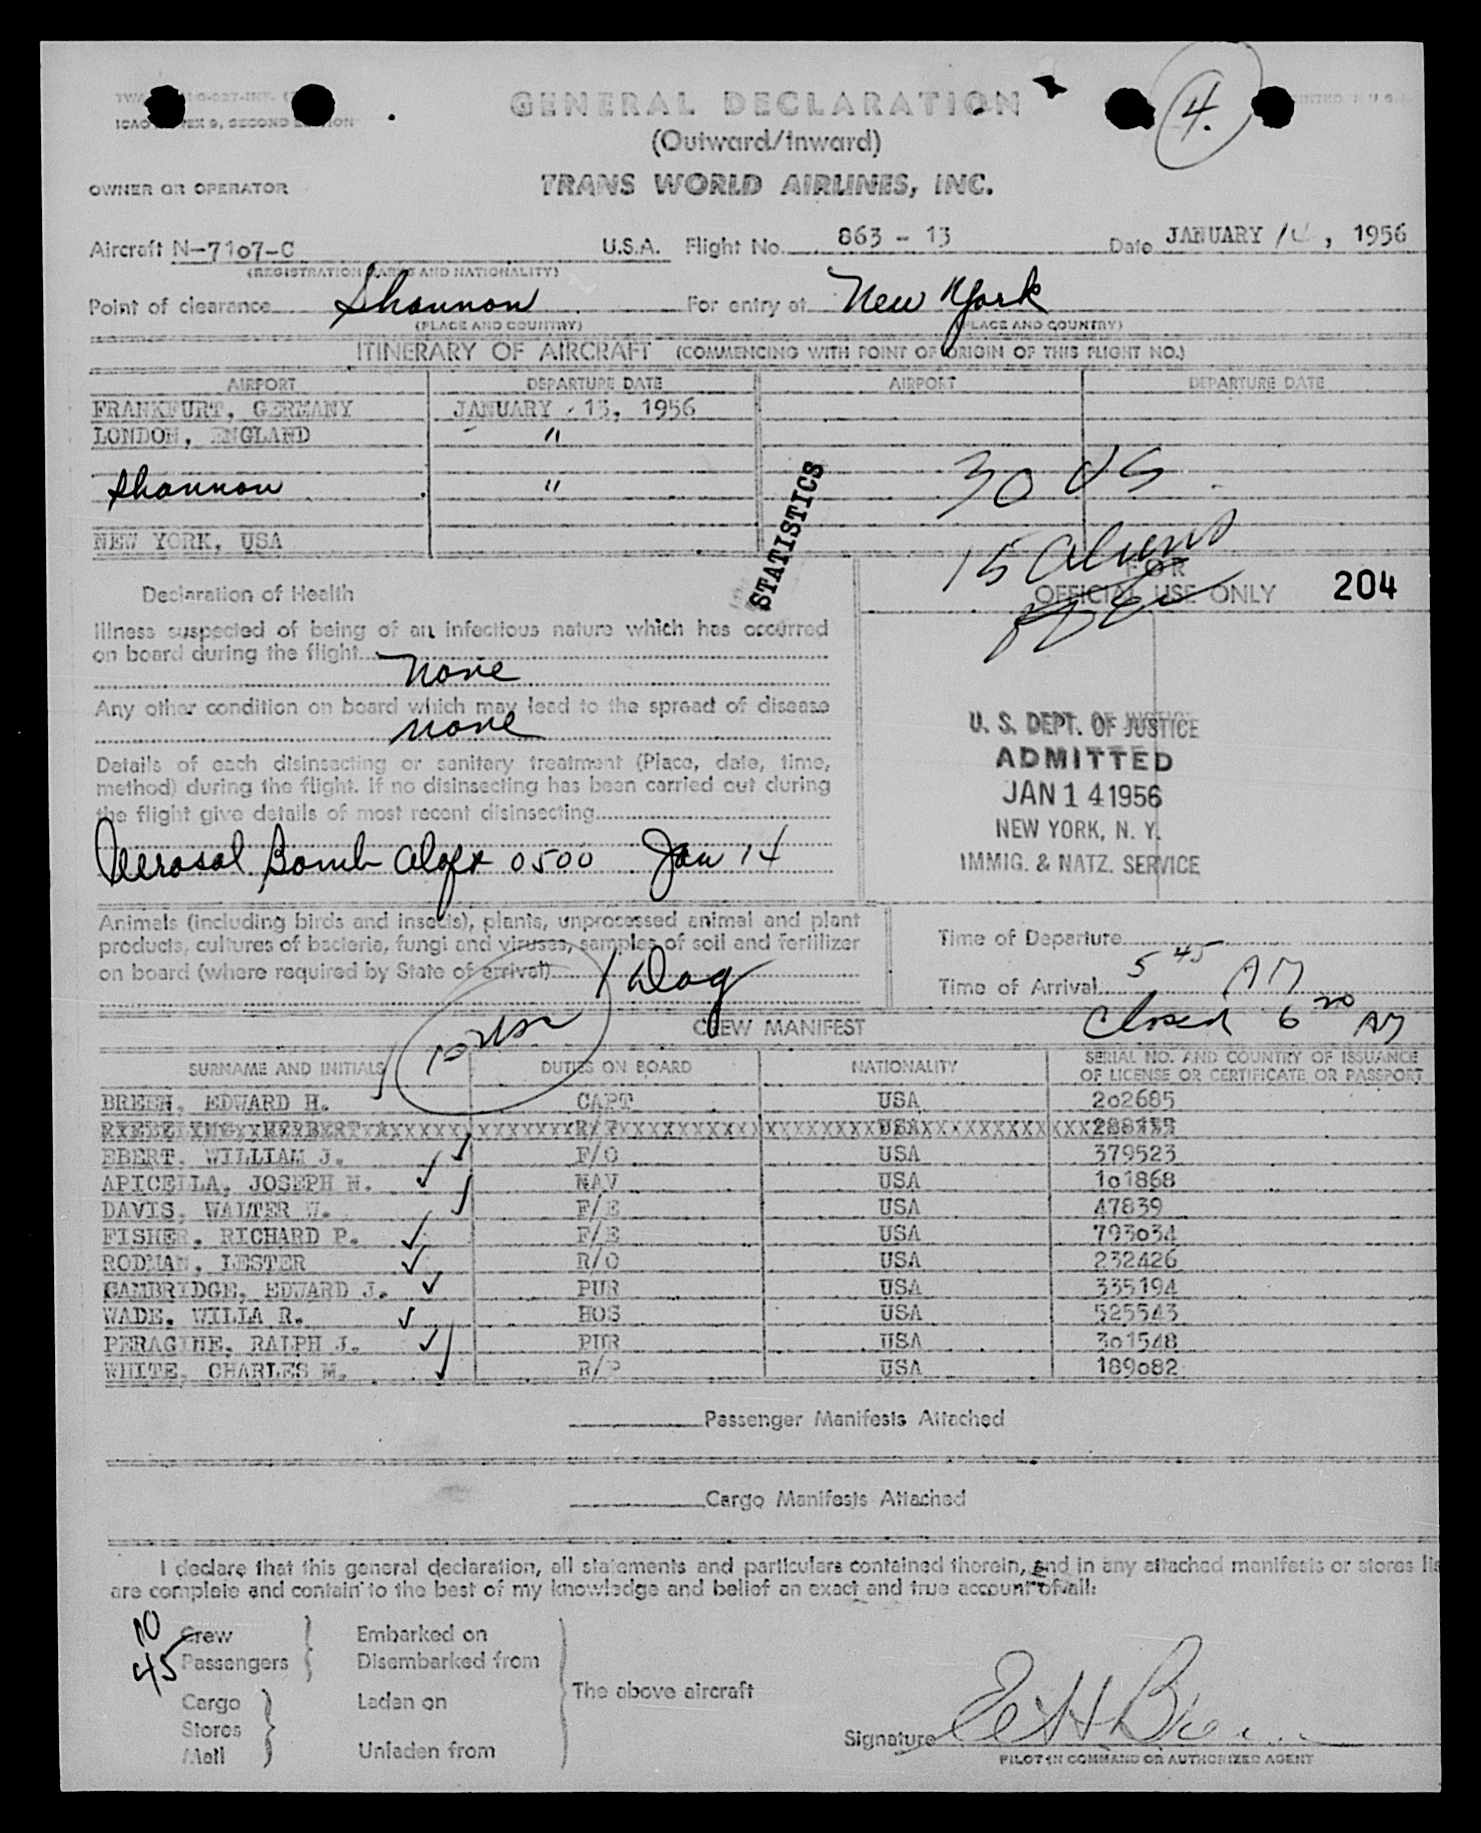 ICAO ANNEX 9, SECOND EDITION
GENERAL DECLARATION
4.
(Outward/Inward)
OWNER OR OPERATOR TRANS WORLD AIRLINES, INC.
Aircraft N-7107-C U.S.A. Flight No. 863 - 13 Date JANUARY 14, 1956
(REGISTRATION MARKS AND NATIONALITY)
Point of clearance Shannon For entry at New York
(PLACE AND COUNTRY) (PLACE AND COUNTRY)
ITINERARY OF AIRCRAFT (COMMENCING WITH POINT OF ORIGIN OF THIS FLIGHT NO.)
AIRPORT DEPARTURE DATE AIRPORT DEPARTURE DATE
FRANKFURT, GERMANY JANUARY 13, 1956
LONDON, ENGLAND "
Shannon "
NEW YORK, USA
30 US
15 aliens
STATISTICS
FOR
OFFICIAL USE ONLY 204
Declaration of Health
Illness suspected of being of an infectious nature which has occurred
on board during the flight
None
Any other condition on board which may lead to the spread of disease
none
Details of each disinsecting or sanitary treatment (Place, date, time,
method) during the flight. If no disinsecting has been carried out during
the flight give details of most recent disinsecting
Aerosol Bomb aloft 0500 Jan 14
U. S. DEPT. OF JUSTICE
ADMITTED
JAN 14 1956
NEW YORK, N. Y.
IMMIG. & NATZ. SERVICE
Animals (including birds and insects), plants, unprocessed animal and plant
products, cultures of bacteria, fungi and viruses, samples of soil and fertilizer
on board (where required by State of arrival) 1 Dog
Time of Departure
Time of Arrival 5 45 AM
Closed 6 20 AM
CREW MANIFEST
SURNAME AND INITIALS DUTIES ON BOARD NATIONALITY SERIAL NO. AND COUNTRY OF ISSUANCE
OF LICENSE OR CERTIFICATE OR PASSPORT
BREEN, EDWARD H. CAPT USA 202685
EBERT, WILLIAM J. F/O USA 379523
APICELLA, JOSEPH N. NAV USA 101868
DAVIS, WALTER W. F/E USA 47839
FISHER, RICHARD P. F/E USA 793034
RODMAN, LESTER R/O USA 232426
CAMBRIDGE, EDWARD J. PUR USA 335194
WADE, WILLA R. HOS USA 525543
PERAGINE, RALPH J. PUR USA 301548
WHITE, CHARLES M. R/P USA 189082
Passenger Manifests Attached
Cargo Manifests Attached
I declare that this general declaration, all statements and particulars contained therein, and in any attached manifests or stores lis
are complete and contain to the best of my knowledge and belief an exact and true account of all:
10 Crew Embarked on
45 Passengers Disembarked from
The above aircraft
Cargo Laden on
Stores
Mail Unladen from
Signature E H Breen
PILOT IN COMMAND OR AUTHORIZED AGENT